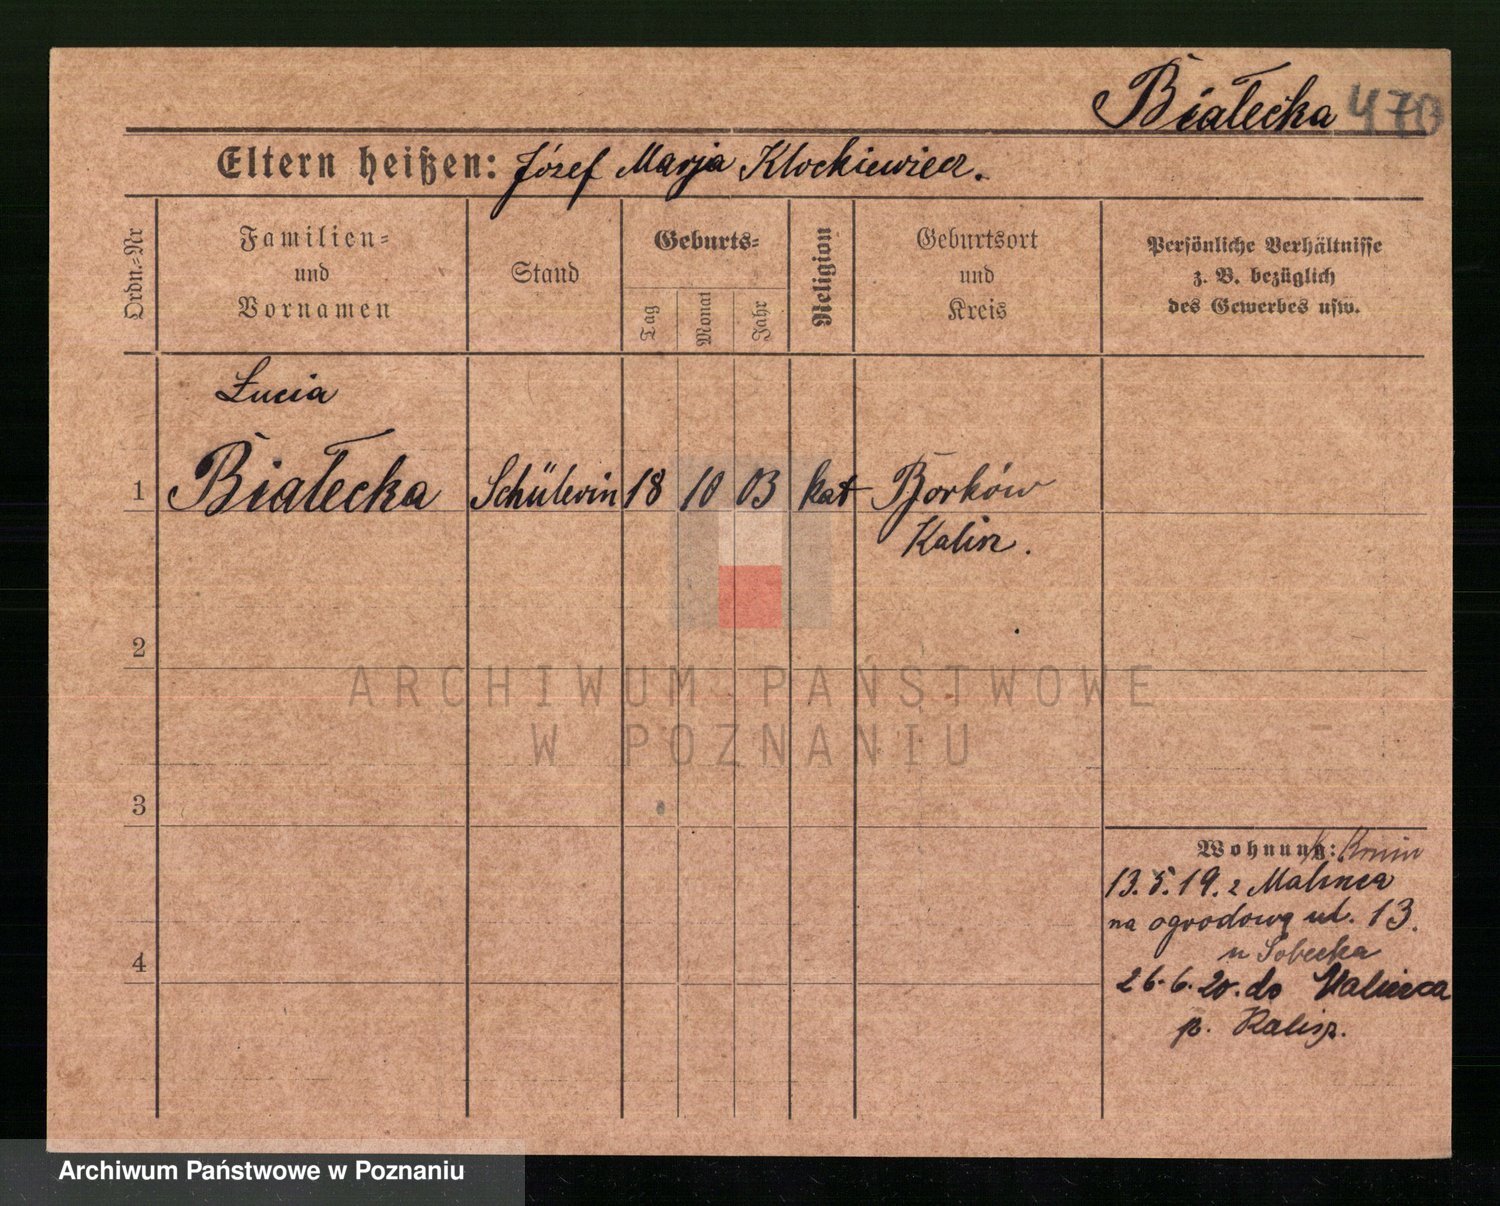 Białecka 470
Eltern heißen: Józef Marja Klockiewicz.
Ordn.=Nr
Familien=
und
Vornamen
Stand
Geburts=
Tag
Monat
Jahr
Religion
Geburtsort
und
Kreis
Persönliche Verhältnisse
z. B. bezüglich
des Gewerbes usw.
Łucia
1 Białecka Schülerin 18 10 03 kat Borków
Kalisz.
2
ARCHIWUM PAŃSTWOWE
W POZNANIU
3
Wohnung: Konin
13.5.19. z Malinca
na ogrodową ul. 13.
u Sobecka
4
26.6.20. do Malinca
p. Kalisz.
Archiwum Państwowe w Poznaniu